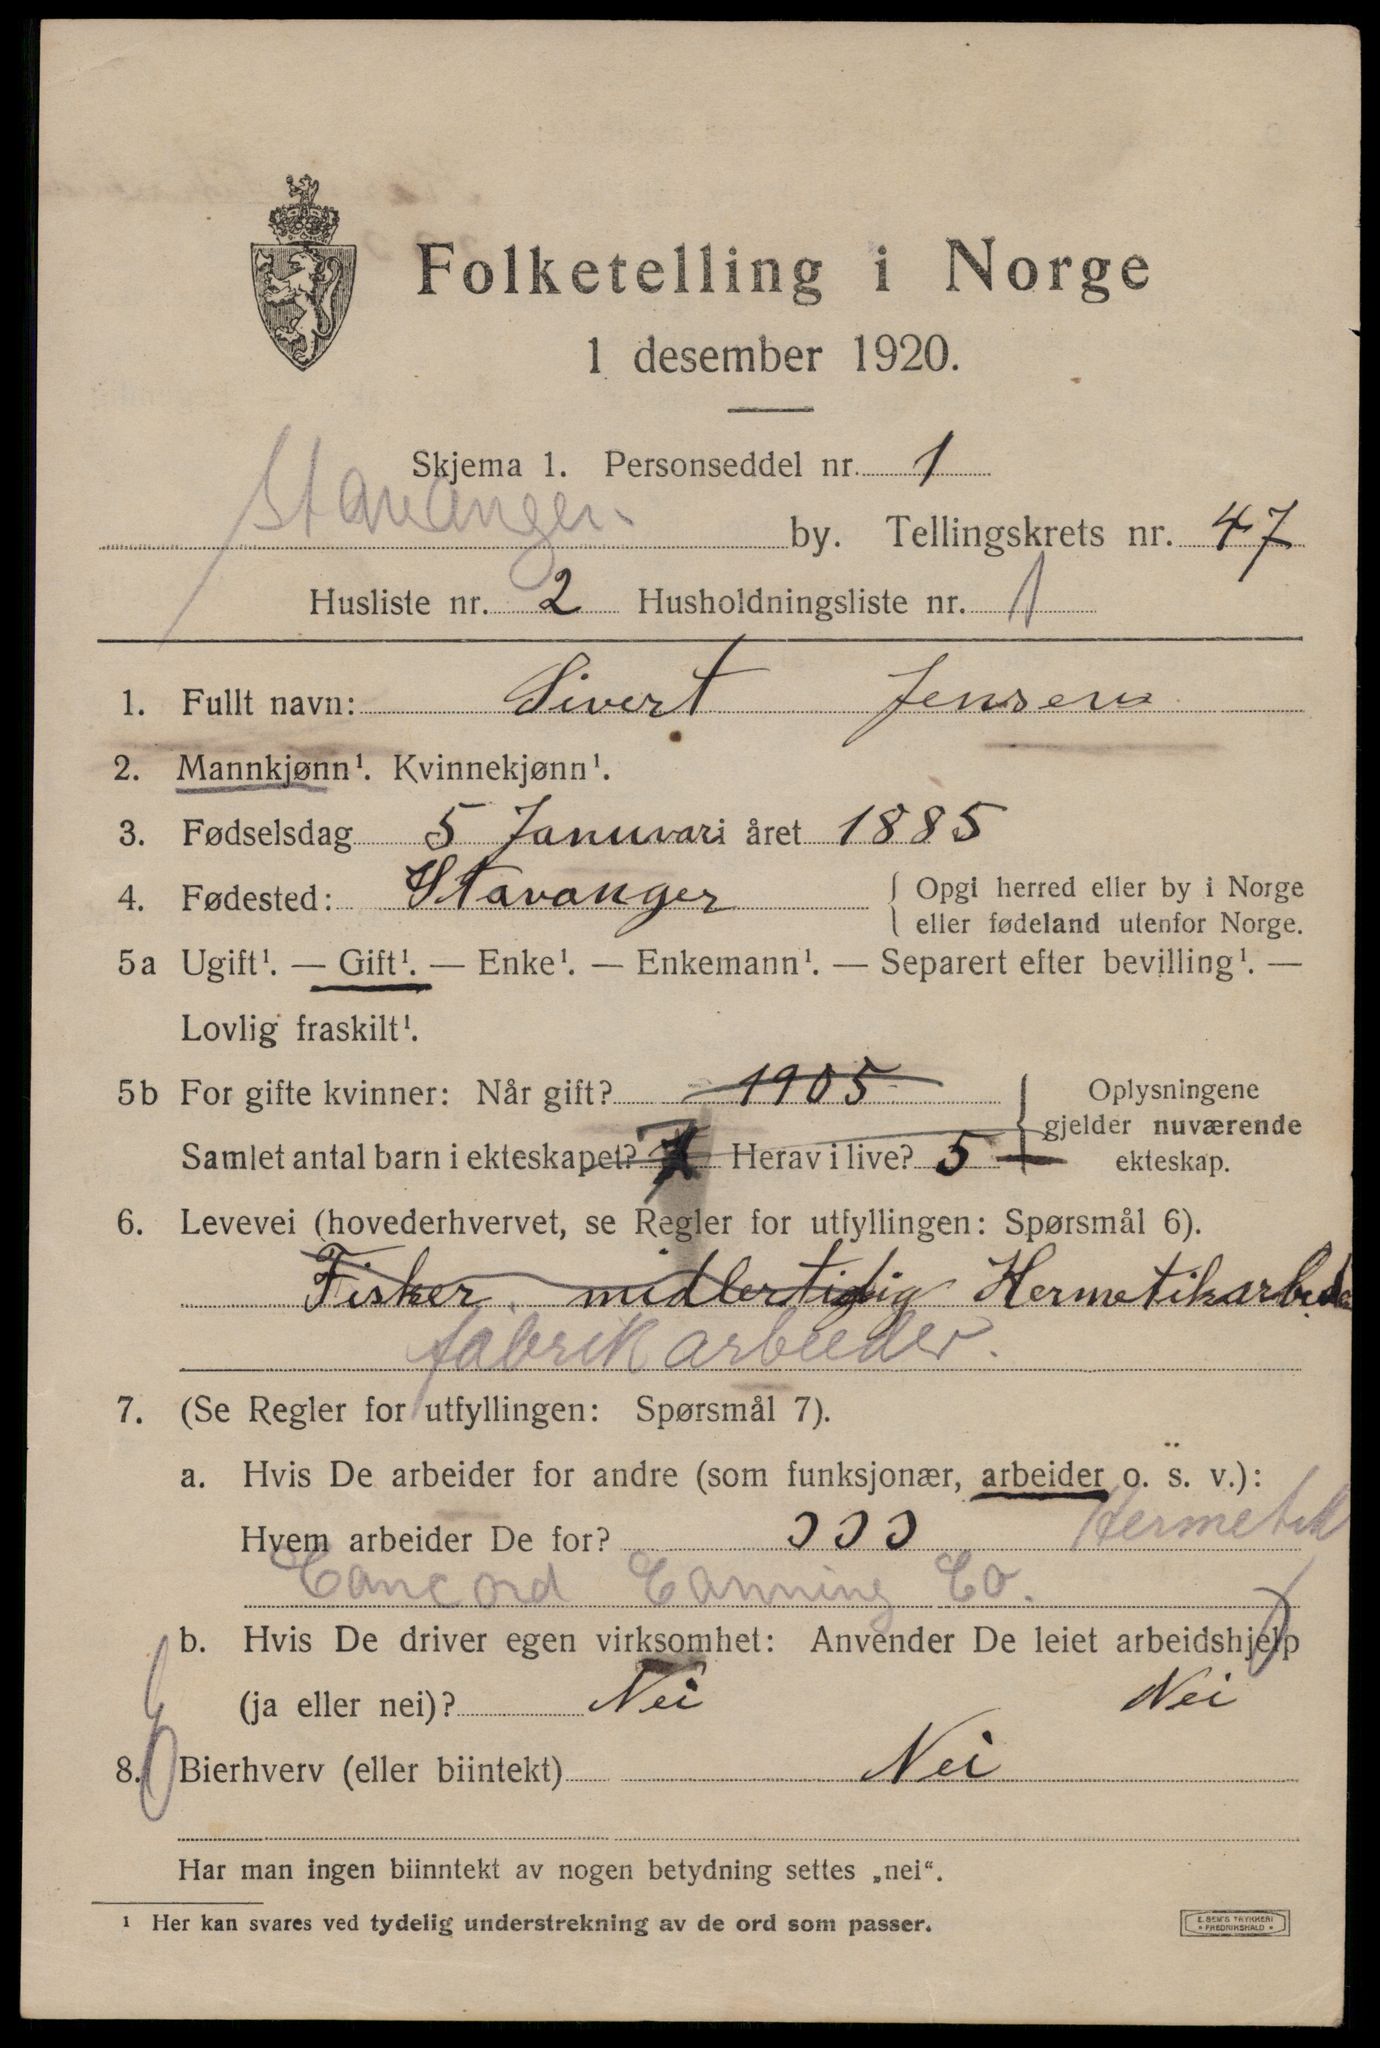 Folketelling i Norge
1 desember 1920.
Skjema 1. Personseddel nr. 1
Stavanger by. Tellingskrets nr. 47
Husliste nr. 2 Husholdningsliste nr. 1
1. Fullt navn: Sivert Jensen
2. Mannkjønn¹. Kvinnekjønn¹.
3. Fødselsdag 5 Januari året 1885
4. Fødested: Stavanger { Opgi herred eller by i Norge
eller fødeland utenfor Norge.
5a Ugift¹. — Gift¹. — Enke¹. — Enkemann¹. — Separert efter bevilling¹. —
Lovlig fraskilt¹.
5b For gifte kvinner: Når gift? 1905
Samlet antal barn i ekteskapet? 7 Herav i live? 5
Oplysningene
gjelder nuværende
ekteskap.
6. Levevei (hovederhvervet, se Regler for utfyllingen: Spørsmål 6).
Fisker. midlertidig Hermetikarbeide
fabrikarbeider.
7. (Se Regler for utfyllingen: Spørsmål 7).
a. Hvis De arbeider for andre (som funksjonær, arbeider o. s. v.):
Hvem arbeider De for? Hermetik
Concord Canning Co.
b. Hvis De driver egen virksomhet: Anvender De leiet arbeidshjelp
(ja eller nei)? Nei Nei
8. Bierhverv (eller biintekt) Nei
Har man ingen biinntekt av nogen betydning settes „nei“.
¹ Her kan svares ved tydelig understrekning av de ord som passer.
E. SEM'S TRYKKERI
FREDRIKSHALD